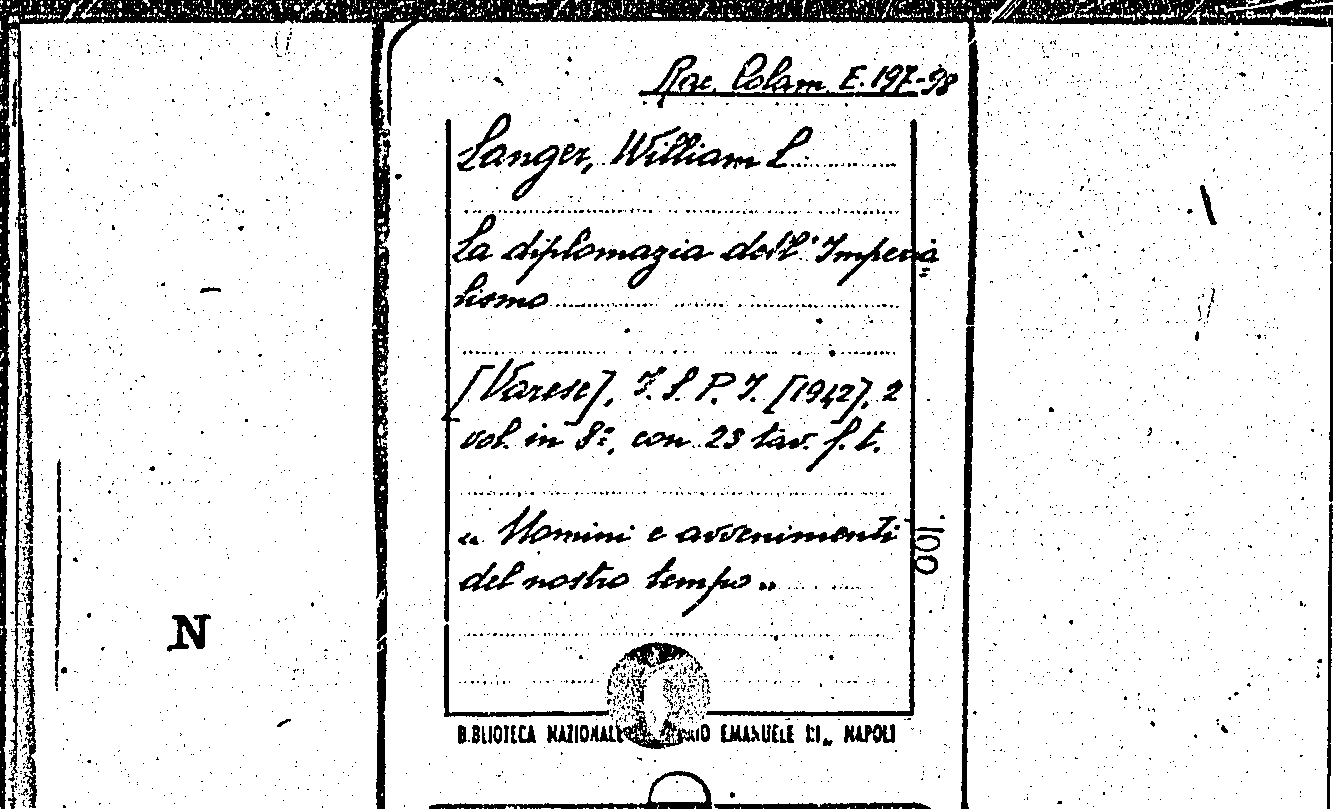 Rac. Colam. E. 197-98
Langer, William L.
La diplomazia dell'Imperia=
lismo
[Varese], I. S. P. I. [1942], 2
vol. in 8º, con 23 tav. f. t.
« Uomini e avvenimenti
del nostro tempo »
001
N
BIBLIOTECA NAZIONALE EMANUELE III„ NAPOLI